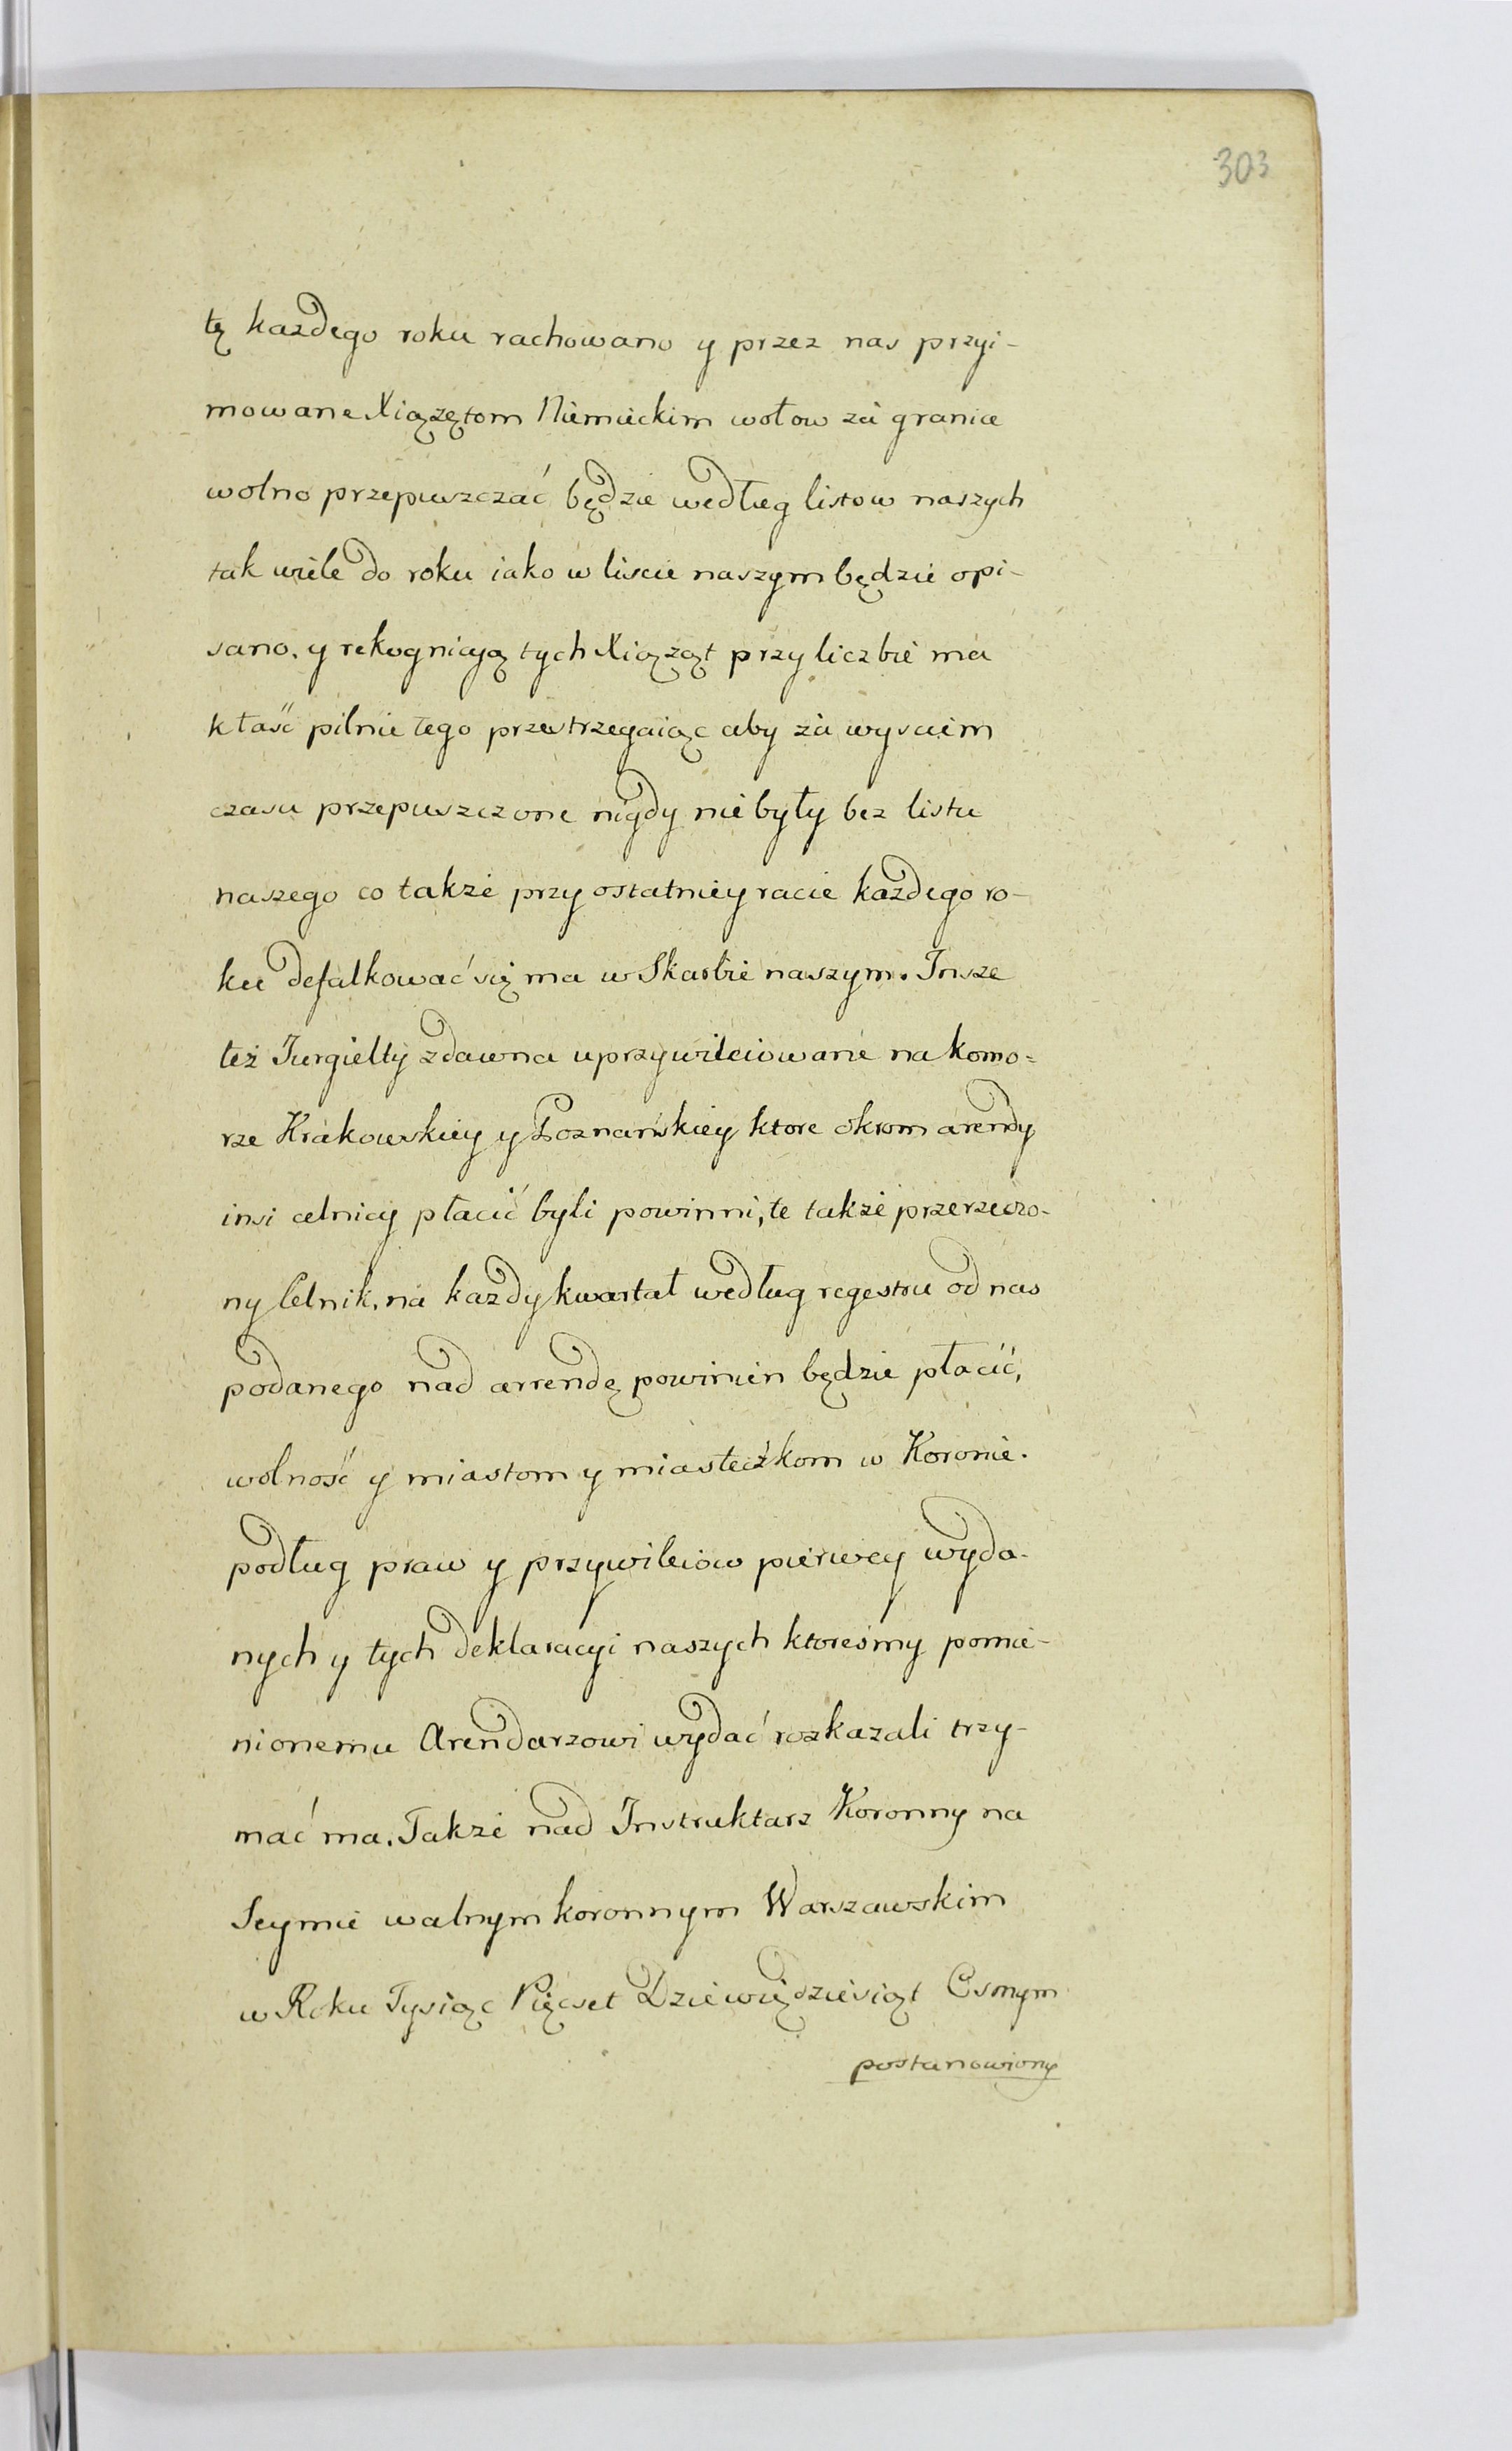 303
tę kazdego roku rachowano y przez nas przyi-
mowane Xiązętom Niemieckim wołow za granice
wolno przepuszczać będzie według listow naszych
tak wiele do roku iako w liscie naszym będzie opi-
sano. y rekognicyą tych Xiąząt przy liczbie ma
kłaść pilnie tego przestrzegaiąc aby za wysciem
czasu przepuszczone nigdy nie były bez listu
naszego co takze przy ostatniey racie kazdego ro-
ku defalkować się ma w Skarbie naszym. Insze
też Jurgielty zdawna uprzywileiowane na komo=
rze Krakowskiey y Poznańskiey ktore okrom arendy
insi celnicy płacić byli powinni, te takze przerzeczo-
ny Celnik, na kazdy kwartał według regestru od nas
podanego nad arrendę powinien będzie płacić,
wolność y miastom y miasteczkom w Koronie.
podług praw y przywileiow pierwey wyda-
nych y tych deklaracyi naszych ktoreśmy pomie-
nionemu Arendarzowi wydać rozkazali trzy-
mać ma. Takze nad Instruktarz Koronny na
Seymie walnym koronnym Warszawskim
w Roku Tysiąc Pięcset Dziewiędziesiąt Osmym
postanowiony